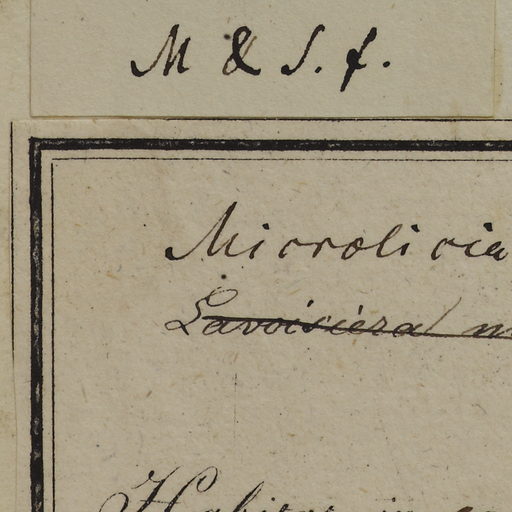 M & S. f.
Microlicia
Lavoisiera
Habitat in